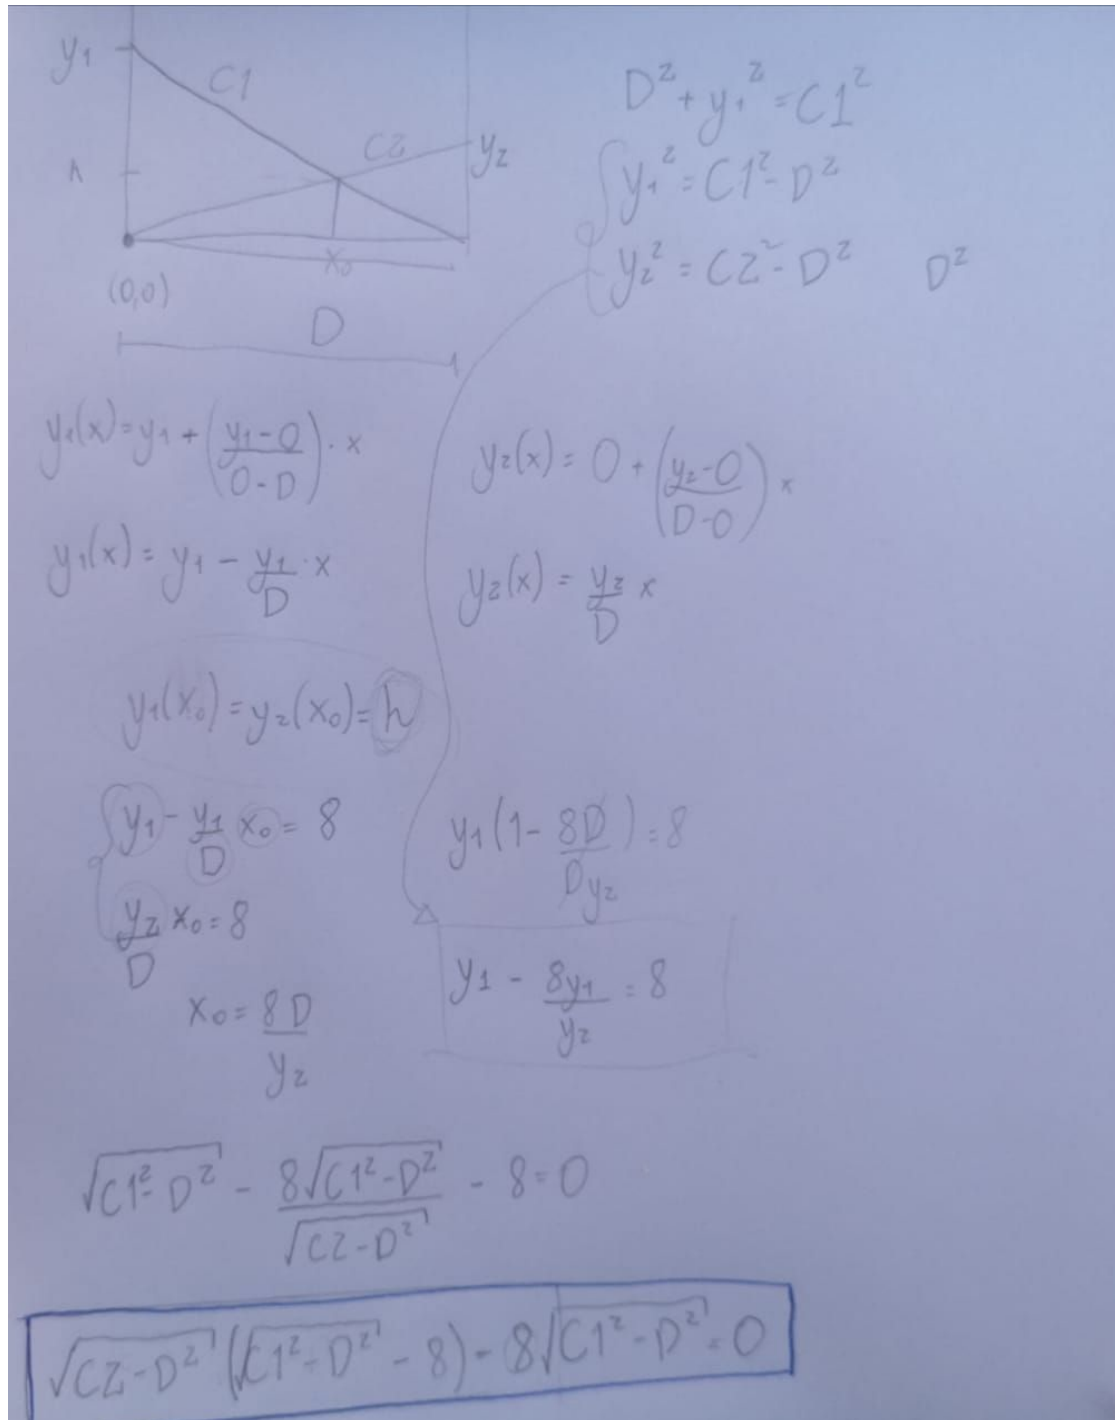 y1
C1
C2
y2
h
x₀
(0,0)
D
D² + y1² = C1²
y1² = C1² - D²
y2² = C2² - D²    D²
y1(x) = y1 + ((y1-0)/(0-D)) · x
y2(x) = 0 + ((y2-0)/(D-0)) x
y1(x) = y1 - y1/D · x
y2(x) = y2/D x
y1(x₀) = y2(x₀) = h
y1 - y1/D x₀ = 8
y2/D x₀ = 8
x₀ = 8D/y2
y1(1 - 8D/(Dy2)) = 8
y1 - 8y1/y2 = 8
√(C1² - D²) - 8√(C1² - D²)/√(C2 - D²) - 8 = 0
√(C2 - D²) (√(C1² - D²) - 8) - 8√(C1² - D²) = 0